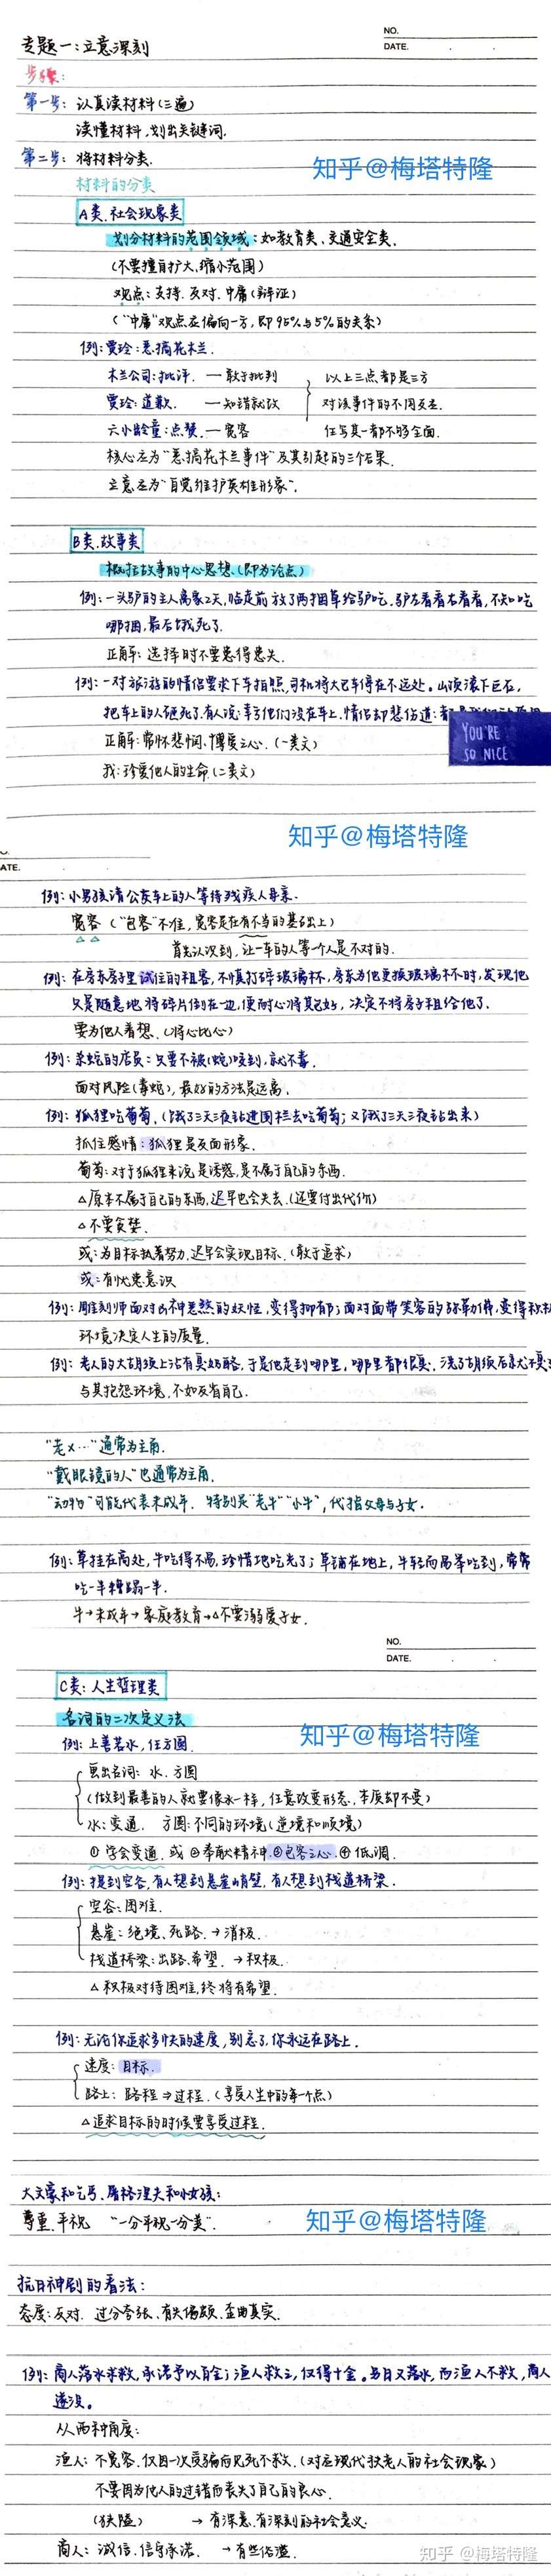 NO.
DATE.
专题一:立意深刻
步骤:
第一步: 认真读材料(三遍)
读懂材料,划出关键词.
第二步: 将材料分类.
知乎@梅塔特隆
材料的分类
A类.社会现象类
划分材料的范围领域:如教育类、交通安全类.
(不要擅自扩大、缩小范围)
观点: 支持. 反对. 中庸(辩证)
("中庸"观点应偏向一方,即95%与5%的关系)
例:贾玲:恶搞花木兰.
木兰公司:批评. — 敢于批判
贾玲:道歉. — 知错就改
六小龄童:点赞. — 宽容
以上三点都是三方
对该事件的不同反应.
任写其一都不够全面.
核心应为"恶搞花木兰事件"及其引起的三个后果.
立意应为"自觉维护英雄形象".
B类.故事类
概括故事的中心思想.(即为论点)
例:一头驴的主人离家2天,临走前放了两捆草给驴吃.驴左看看右看看,不知吃
哪捆,最后饿死了.
正解: 选择时不要患得患失.
例:一对旅游的情侣要求下车拍照,司机将大巴车停在不远处。山顶滚下巨石,
把车上的人砸死了.有人说:幸亏他们没在车上.情侣却悲伤道:
YOU'RE
SO NICE
正解:常怀悲悯、博爱之心.(一类文)
我:珍爱他人的生命.(二类文)
知乎@梅塔特隆
ATE.
例: 小男孩请公交车上的人等待残疾人母亲.
宽容 ("包容"不准,宽容是在有不当的基础上)
首先认识到,让一车的人等一个人是不对的.
例: 在房东房子里试住的租客,不慎打碎玻璃杯,房东为他更换玻璃杯时,发现他
只是随意地将碎片倒在一边,便耐心将其包好,决定不将房子租给他了.
要为他人着想.(将心比心)
例: 杀蛇的店员:只要不被(蛇)咬到,就不毒.
面对风险(毒蛇),最好的方法是远离.
例: 狐狸吃葡萄.(饿了三天三夜钻进围栏去吃葡萄;又饿了三天三夜钻出来)
抓住感情:狐狸是反面形象.
葡萄:对于狐狸来说是诱惑,是不属于自己的东西.
△原本不属于自己的东西,迟早也会失去.(还要付出代价)
△不要贪婪.
或:为目标执着努力,迟早会实现目标.(敢于追求)
或:有忧患意识
例: 雕刻师面对凶神恶煞的妖怪,变得抑郁;面对面带笑容的弥勒佛,变得积极
环境决定人生的质量.
例: 老人的大胡须上沾有臭奶酪,于是他走到哪里,哪里都很臭.洗了胡须后就不臭了
与其抱怨环境,不如反省自己.
"老×…"通常为主角.
"戴眼镜的人"也通常为主角.
"动物"可能代表未成年. 特别是"老牛""小牛",代指父母与子女.
例: 草挂在高处,牛吃得不易,珍惜地吃光了;草铺在地上,牛轻而易举吃到,常常
吃一半糟蹋一半.
牛→未成年→家庭教育→△不要溺爱子女.
NO.
DATE.
C类: 人生哲理类
名词的二次定义法
知乎@梅塔特隆
例: 上善若水,任方圆.
画出名词: 水. 方圆
(做到最善的人就要像水一样,任意改变形态,本质却不变)
水:变通. 方圆:不同的环境(逆境和顺境)
①学会变通. 或②奉献精神.③包容之心.④低调.
例: 提到空谷,有人想到悬崖峭壁,有人想到栈道桥梁.
空谷:困难.
悬崖:绝境、死路. → 消极.
栈道桥梁:出路.希望. → 积极.
△积极对待困难,终将有希望.
例:无论你追求多快的速度,别忘了,你永远在路上.
速度:目标.
路上: 路程⇒过程.(享受人生中的每一个点)
△追求目标的时候要享受过程.
大文豪和乞丐、屠格涅夫和小女孩:
尊重.平视 "一分平视一分美".
知乎@梅塔特隆
抗日神剧的看法:
态度:反对. 过分夸张、有失偏颇、歪曲真实.
例: 商人落水求救,承诺予以百金;渔人救之,仅得十金。另日又落水,而渔人不救,商人
遂没。
从两种角度:
渔人: 不宽容.仅因一次受骗而见死不救.(对应现代扶老人的社会现象)
不要因为他人的过错而丧失了自己的良心.
(狭隘) → 有深意.有深刻的社会意义.
商人: 诚信.信守承诺. → 有些俗滥.
知乎 @梅塔特隆